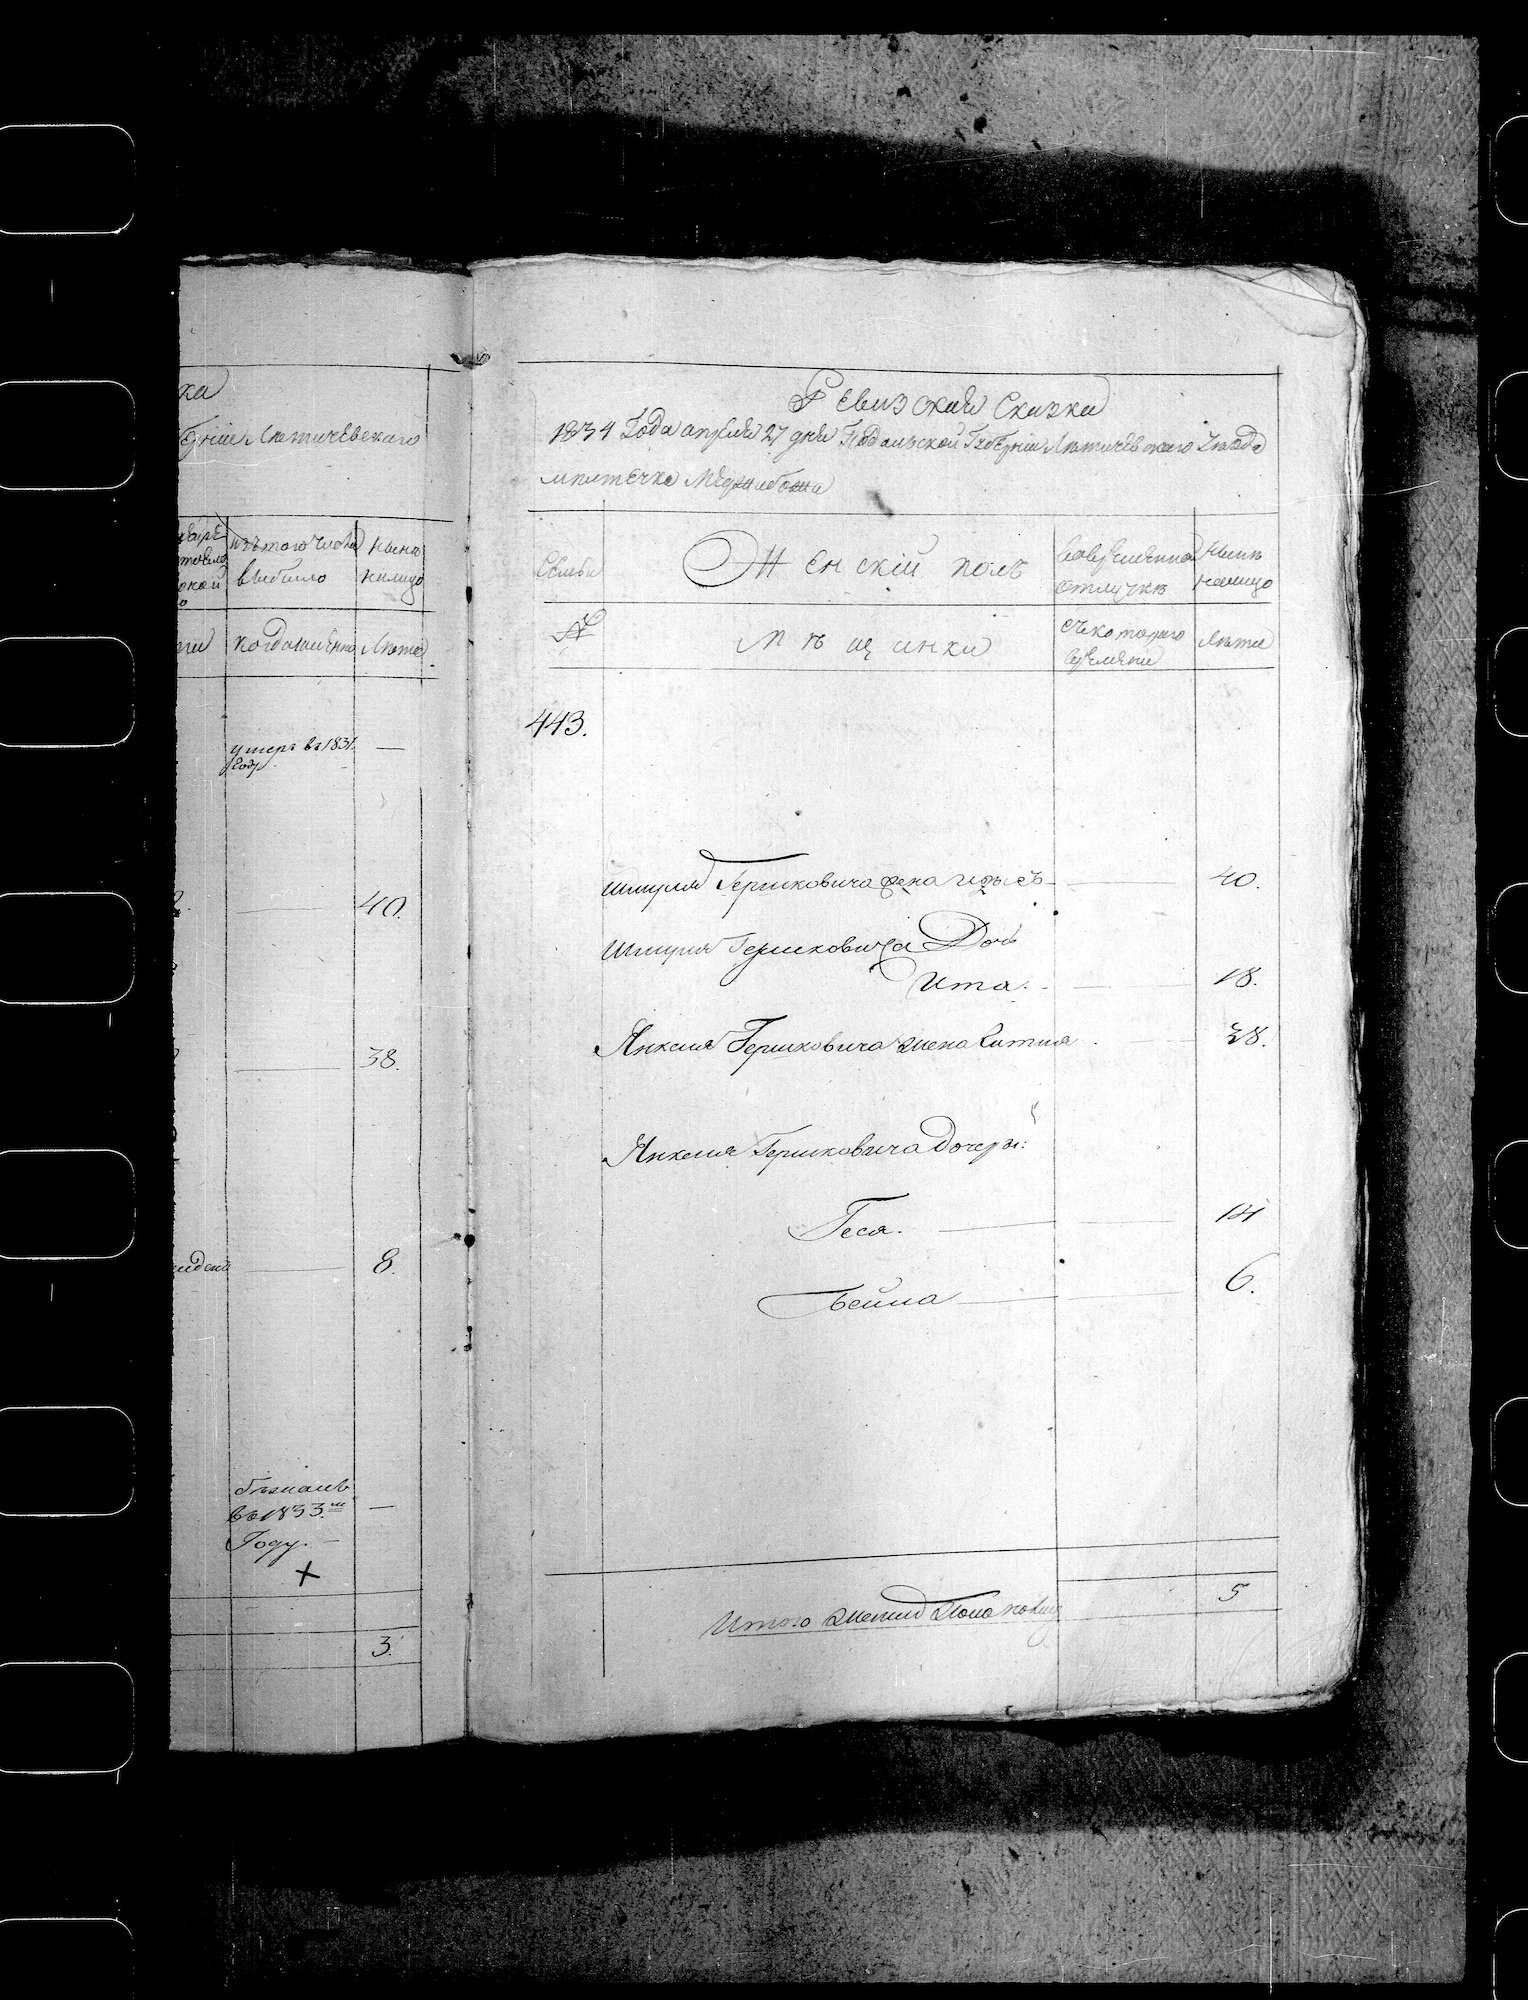 ка
берніи Летичевскаго
изъ того числа
выбыло
ныне
налицо
когда имянно
Лета
умеръ въ 1831
году
40.
38.
8.
бежалъ
въ 1833.м
Году.
3.
Ревизская Сказка
1834 Года апреля 27 дня Подольской Губерніи Летичевскаго Уезда
местечка Меджибожа
Семьи
Женскій полъ
вовременной
отлучке
ныне
налицо
№
Мещинки
съкотораго
времяни
Лета
443.
Шмуля Гершковича жена 40.
Шмуля Гершковича Дочь
Ита. 18.
Янкеля Гершковича жена 38.
Янкеля Гершковича дочеры:
Геся. 14
Бейла 6.
Итого женска Пола налицо 5